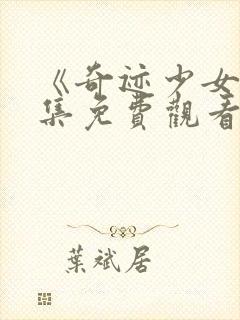 《奇迹少女
集免費觀看
葉斌居